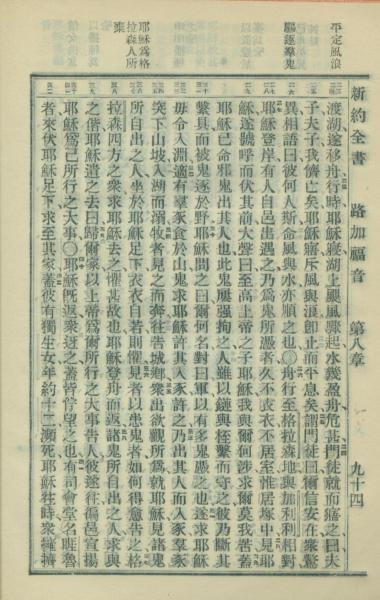 平定風浪
驅逐羣鬼
耶穌爲格
拉森人所
棄
新約全書 路加福音 第八章 九十四
渡湖遂移舟行時耶穌寢湖上颶風驟起水幾盈舟危甚門徒就而寤之曰夫
子夫子我儕亡矣耶穌寤斥風與浪卽止而平息矣謂門徒曰爾信安在衆驚
異相語曰彼何人斯命風與水亦順之也○舟行至格拉森地與加利利相對
耶穌登岸有人自邑出遇之乃爲鬼所憑者久不衣衣不居室惟居塚中見耶
穌遂號呼而伏其前大聲曰至高上帝之子耶穌我與爾何涉求爾莫我苦蓋
耶穌已命邪鬼出其人也此鬼屢强拘之人雖以鏈與桎繫而守之彼乃斷其
繫具而被鬼逐於野耶穌問之曰爾何名對曰軍以有多鬼憑之也遂求耶穌
毋令入淵適有羣豕食於山鬼求耶穌許其入豕許之乃出其人而入豕羣豕
突下山坡入湖而溺牧者見之而奔往告城鄉衆出欲觀所爲就耶穌見諸鬼
所自出之人坐於耶穌足下衣衣自若則懼見者以患鬼者如何得愈告之格
拉森四方之衆求耶穌去之懼甚故也耶穌登舟而返諸鬼所自出之人求與
之偕耶穌遣之去曰歸爾家以上帝爲爾所行之大事告人彼遂往徧邑宣揚
耶穌爲己所行之大事○耶穌旣返衆迓之蓋皆佇望之也有司會堂名睚魯
者來伏耶穌足下求至其家蓋彼有獨生女年約十二瀕死耶穌往時衆擁擠